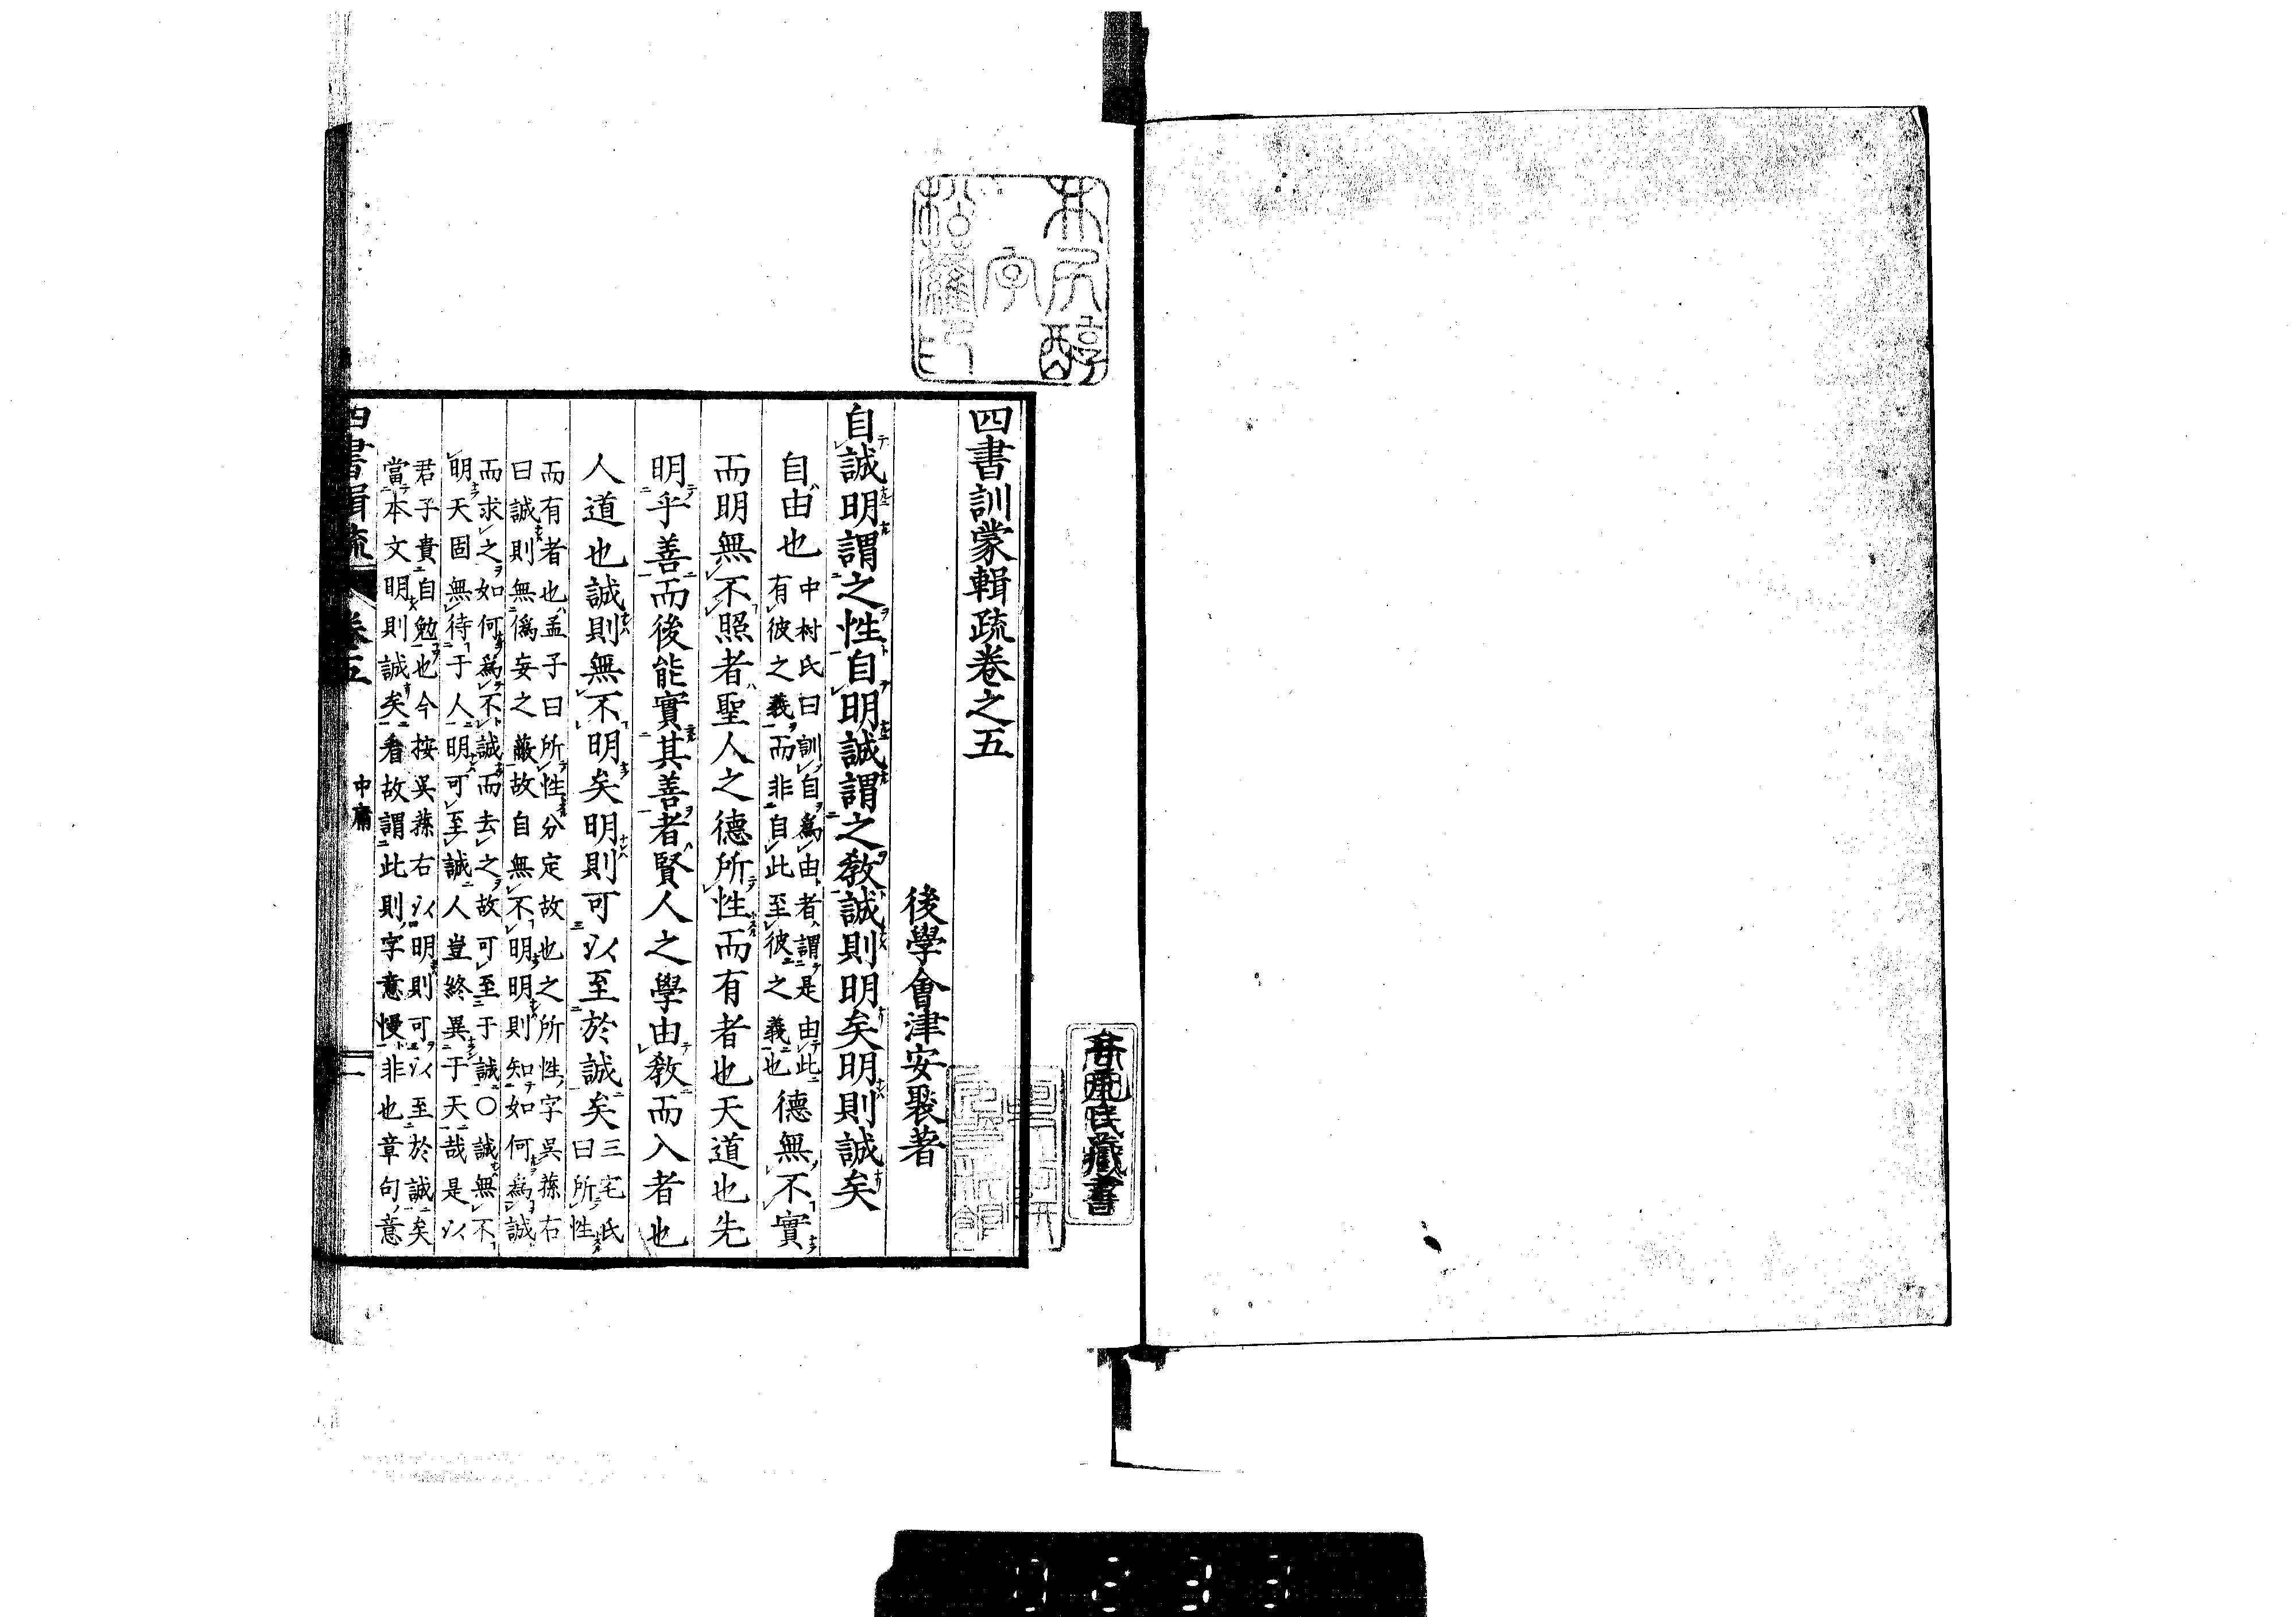 四書訓蒙輯疏卷之五
後學會津安褧著
自誠明謂之性自明誠謂之教誠則明矣明則誠矣
自由也
中村氏曰訓自爲由者謂是由此
有彼之義而非自此至彼之義也
德無不實
而明無不照者聖人之德所性而有者也天道也先
明乎善而後能實其善者賢人之學由教而入者也
人道也誠則無不明矣明則可以至於誠矣
三宅氏
曰所性
而有者也孟子曰所性分定故也之所性字吳蓀右
曰誠則無僞妄之蔽故自無不明明則知如何爲誠
而求之如何爲不誠而去之故可至于誠○誠無不
明天固無待于人明可至誠人豈終異于天哉是以
君子貴自勉也今按吳蓀右以明則可以至於誠矣
當本文明則誠矣看故謂此則字意慢非也章句意
四書輯疏 卷五
中庸
一